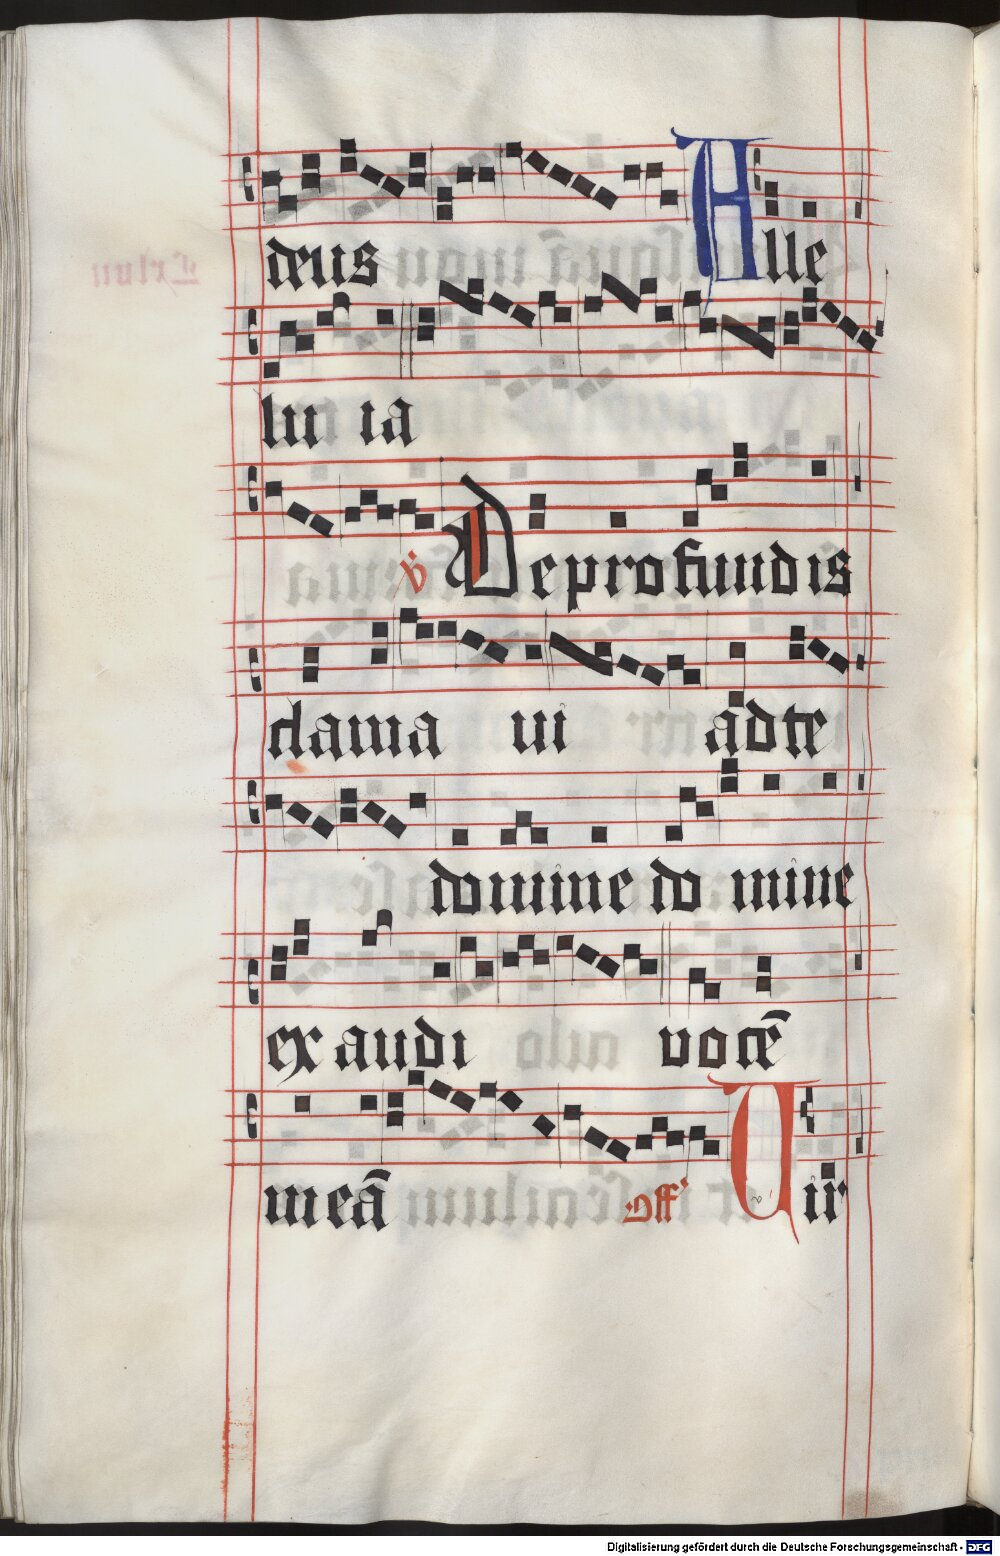 deus Alle
lu ia
℣ De profundis
clama ui ad te
domine do mine
ex audi uocē
meā off Uir
Digitalisierung gefördert durch die Deutsche Forschungsgemeinschaft - DFG